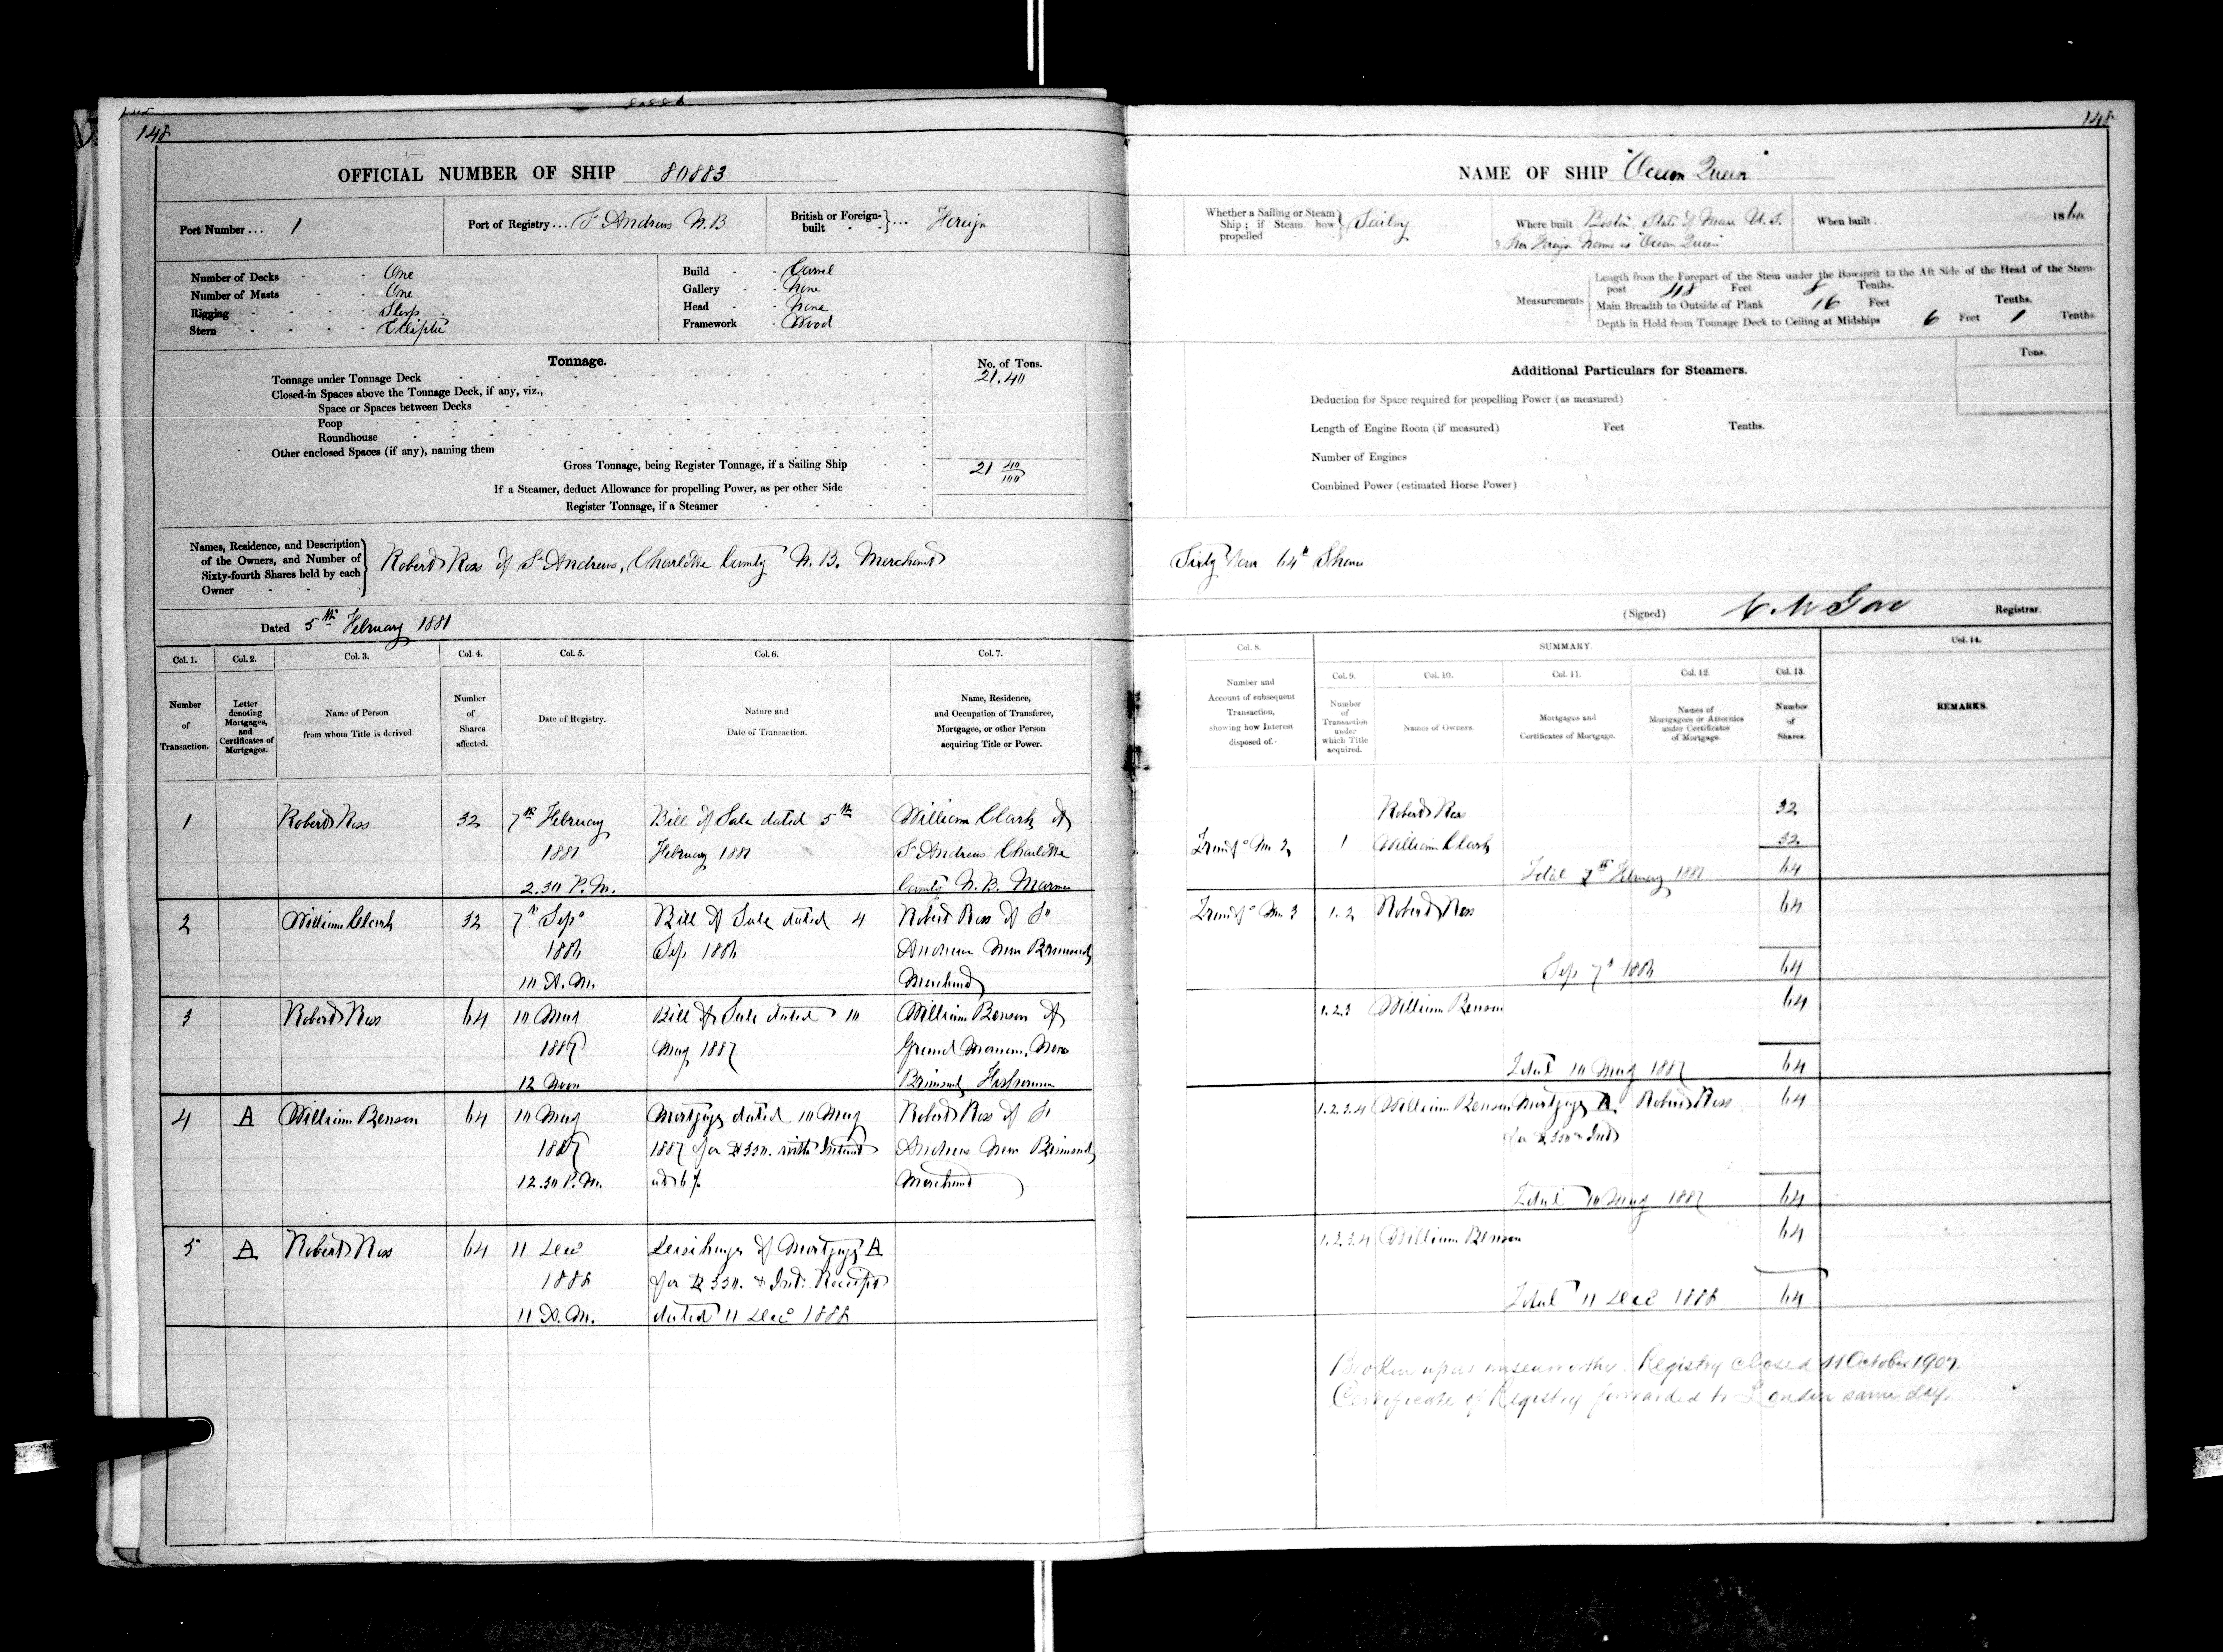 148
OFFICIAL NUMBER OF SHIP 80883
Port Number... 1
Port of Registry... St Andrews N.B
British or Foreign-built ... Foreign
Number of Decks - - One
Number of Masts - - One
Rigging - - - - Sloop
Stern - - - - Elliptic
Build - - Carvel
Gallery - - None
Head - - None
Framework - Wood
Tonnage.
No. of Tons.
Tonnage under Tonnage Deck 21.40
Closed-in Spaces above the Tonnage Deck, if any, viz.,
Space or Spaces between Decks
Poop
Roundhouse
Other enclosed Spaces (if any), naming them
Gross Tonnage, being Register Tonnage, if a Sailing Ship 21 40/100
If a Steamer, deduct Allowance for propelling Power, as per other Side
Register Tonnage, if a Steamer
Names, Residence, and Description
of the Owners, and Number of
Sixty-fourth Shares held by each
Owner
Robert Ross of St Andrews, Charlotte County N.B. Merchant
Dated 5th February 1881
Col. 1. Col. 2. Col. 3. Col. 4. Col. 5. Col. 6. Col. 7.
Number of Transaction.
Letter denoting Mortgages, and Certificates of Mortgages.
Name of Person from whom Title is derived
Number of Shares affected.
Date of Registry.
Nature and Date of Transaction.
Name, Residence, and Occupation of Transferee, Mortgagee, or other Person acquiring Title or Power.
1 Robert Ross 32 7th February Bill of Sale dated 5th William Clark of
1881 February 1881 St Andrews Charlotte
2.30 P.M. County N.B. Mariner
2 William Clark 32 7th Sep Bill of Sale dated 4 Robert Ross of St
1886 Sep 1886 Andrews New Brunswick
10 A.M. Merchant
3 Robert Ross 64 10 May Bill of Sale dated 10 William Benson of
1887 May 1887 Grand Manan, New
12 Noon Brunswick Fisherman
4 A William Benson 64 10 May Mortgage dated 10 May Robert Ross of St
1887 1887 for $350. with Interest Andrews New Brunswick
12.30 P.M. at 6% Merchant
5 A Robert Ross 64 11 Dec Discharge of Mortgage A
1888 for $350. & Int: Receipt
11 A.M. dated 11 Dec 1888
148
NAME OF SHIP "Ocean Queen"
Whether a Sailing or Steam
Ship; if Steam how
propelled
Sailing
Where built Boston, State of Mass U.S.
& her Foreign Name is "Ocean Queen"
When built .. 186
Measurements
Length from the Forepart of the Stem under the Bowsprit to the Aft Side of the Head of the Stern-
post 48 Feet 8 Tenths.
Main Breadth to Outside of Plank 16 Feet Tenths.
Depth in Hold from Tonnage Deck to Ceiling at Midships 6 Feet 1 Tenths.
Additional Particulars for Steamers.
Tons.
Deduction for Space required for propelling Power (as measured)
Length of Engine Room (if measured) Feet Tenths.
Number of Engines
Combined Power (estimated Horse Power)
Sixty four 64th Shares
(Signed) Registrar.
Col. 8. SUMMARY. Col. 14.
Col. 9. Col. 10. Col. 11. Col. 12. Col. 13.
Number and Account of subsequent Transaction, showing how Interest disposed of.
Number of Transaction under which Title acquired.
Names of Owners.
Mortgages and Certificates of Mortgage.
Names of Mortgagees or Attornies under Certificates of Mortgage.
Number of Shares.
REMARKS.
Robert Ross 32
No 2 1 William Clark 32
Total 7th February 1881 64
No 3 1.2 Robert Ross 64
Sep 7th 1886 64
1.2.3 William Benson 64
Total 10 May 1887 64
1.2.3.4 William Benson Mortgage A Robert Ross 64
for $350 & Int
Total 10 May 1887 64
1.2.3.4 William Benson 64
Total 11 Dec 1888 64
Broken up as unseaworthy. Registry closed 11 October 1907.
Certificate of Registry forwarded to London same day.